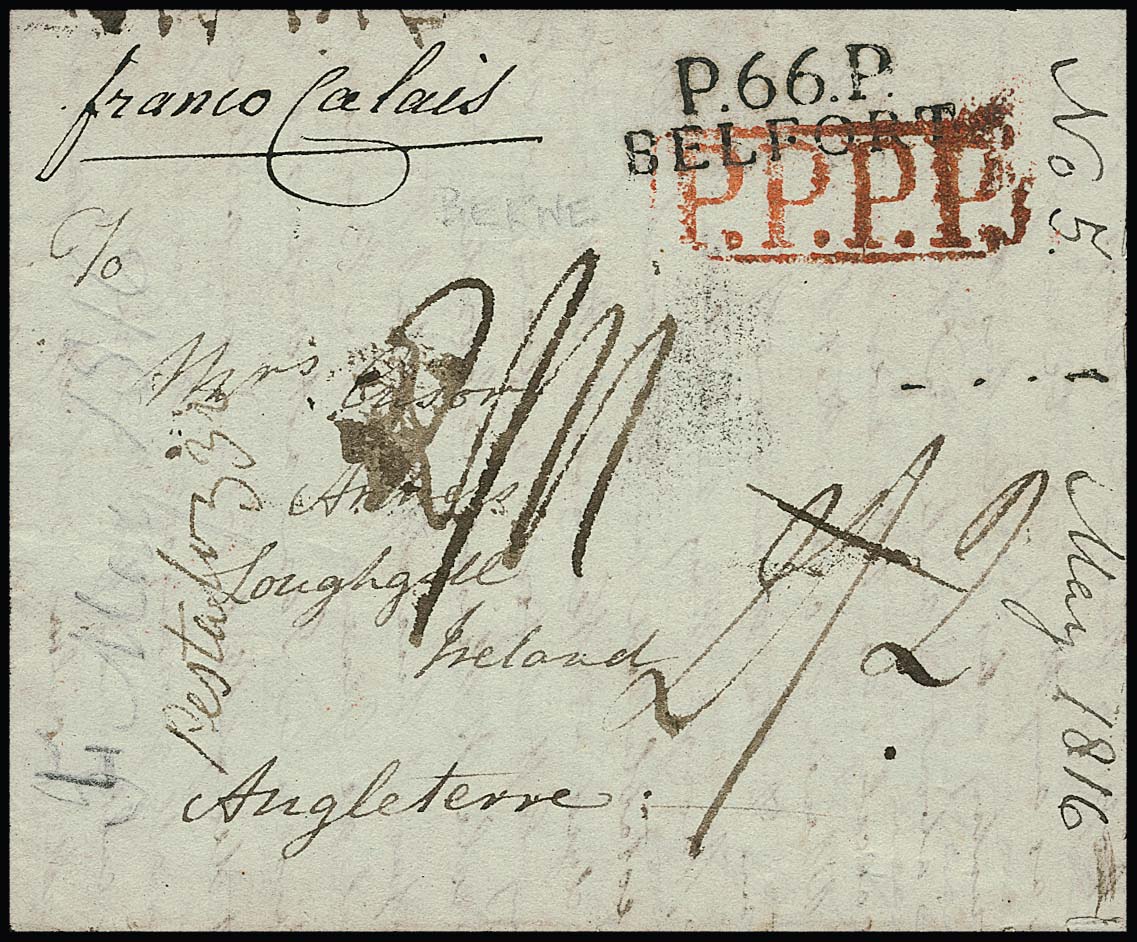 franco Calais
P.66.P.
BELFORT
P.P.P.P.
No 5.
BERNE
c/o
Mrs.
Loughgall
Ireland
Angleterre.
Pestalozzi
2/2
May 1816